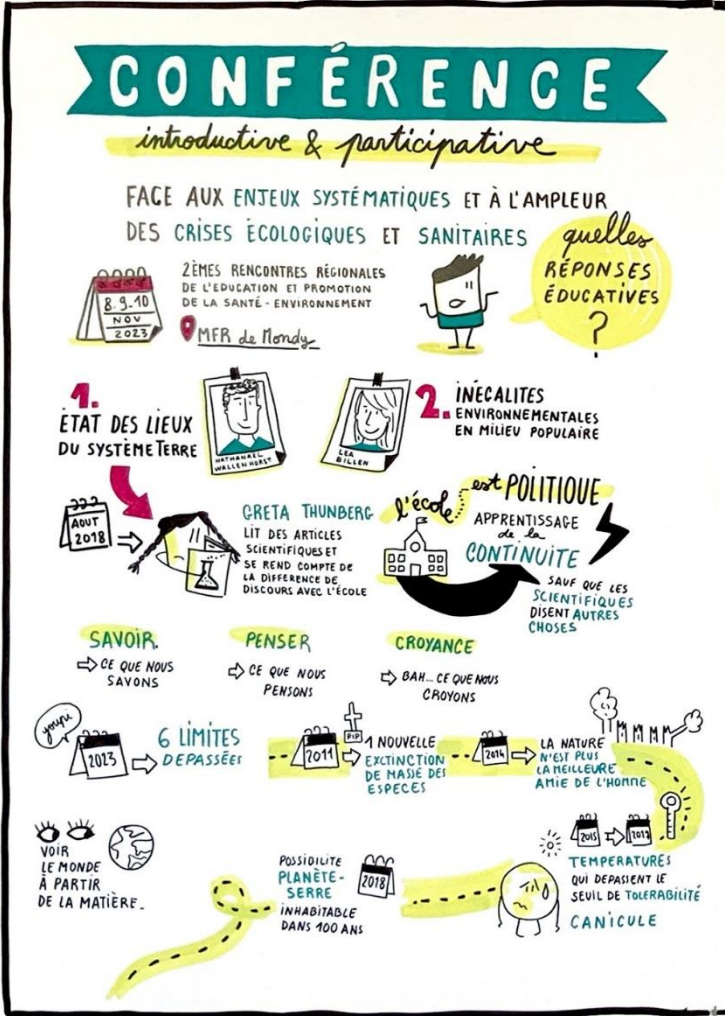 CONFÉRENCE
introductive & participative
FACE AUX ENJEUX SYSTÉMATIQUES ET À L'AMPLEUR
DES CRISES ÉCOLOGIQUES ET SANITAIRES
quelles
RÉPONSES
ÉDUCATIVES
?
8.9.10
NOV
2023
2ÈMES RENCONTRES RÉGIONALES
DE L'EDUCATION ET PROMOTION
DE LA SANTÉ-ENVIRONNEMENT
MFR de Mondy
1.
ÉTAT DES LIEUX
DU SYSTÈME TERRE
NATHANAEL
WALLENHORST
LEA
BILLEN
2. INÉGALITES
ENVIRONNEMENTALES
EN MILIEU POPULAIRE
AOUT
2018
GRETA THUNBERG
LIT DES ARTICLES
SCIENTIFIQUES ET
SE REND COMPTE DE
LA DIFFERENCE DE
DISCOURS AVEC L'ÉCOLE
l'école est POLITIQUE
APPRENTISSAGE
de la
CONTINUITE
SAUF QUE LES
SCIENTIFIQUES
DISENT AUTRES
CHOSES
SAVOIR
CE QUE NOUS
SAVONS
PENSER
CE QUE NOUS
PENSONS
CROYANCE
BAH... CE QUE NOUS
CROYONS
youpi
2023
6 LIMITES
DEPASSÉES
2011
PIP
1 NOUVELLE
EXCTINCTION
DE MASSE DES
ESPECES
2014
LA NATURE
N'EST PLUS
LA MEILLEURE
AMIE DE L'HOMME
2015
2017
TEMPERATURES
QUI DEPASSENT LE
SEUIL DE TOLERABILITÉ
CANICULE
POSSIBILITE
PLANÈTE-
SERRE
INHABITABLE
DANS 100 ANS
2018
VOIR
LE MONDE
À PARTIR
DE LA MATIÈRE_